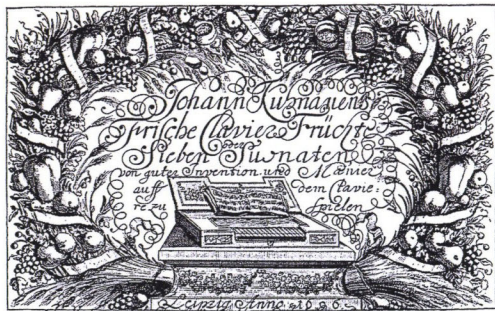 Johann Kuhnauens
Frische Clavier Früchte
oder
Sieben Suonaten
von guter Invention und Manier
auff dem Clavie:
re zu spielen
Leipzig Anno 1696.